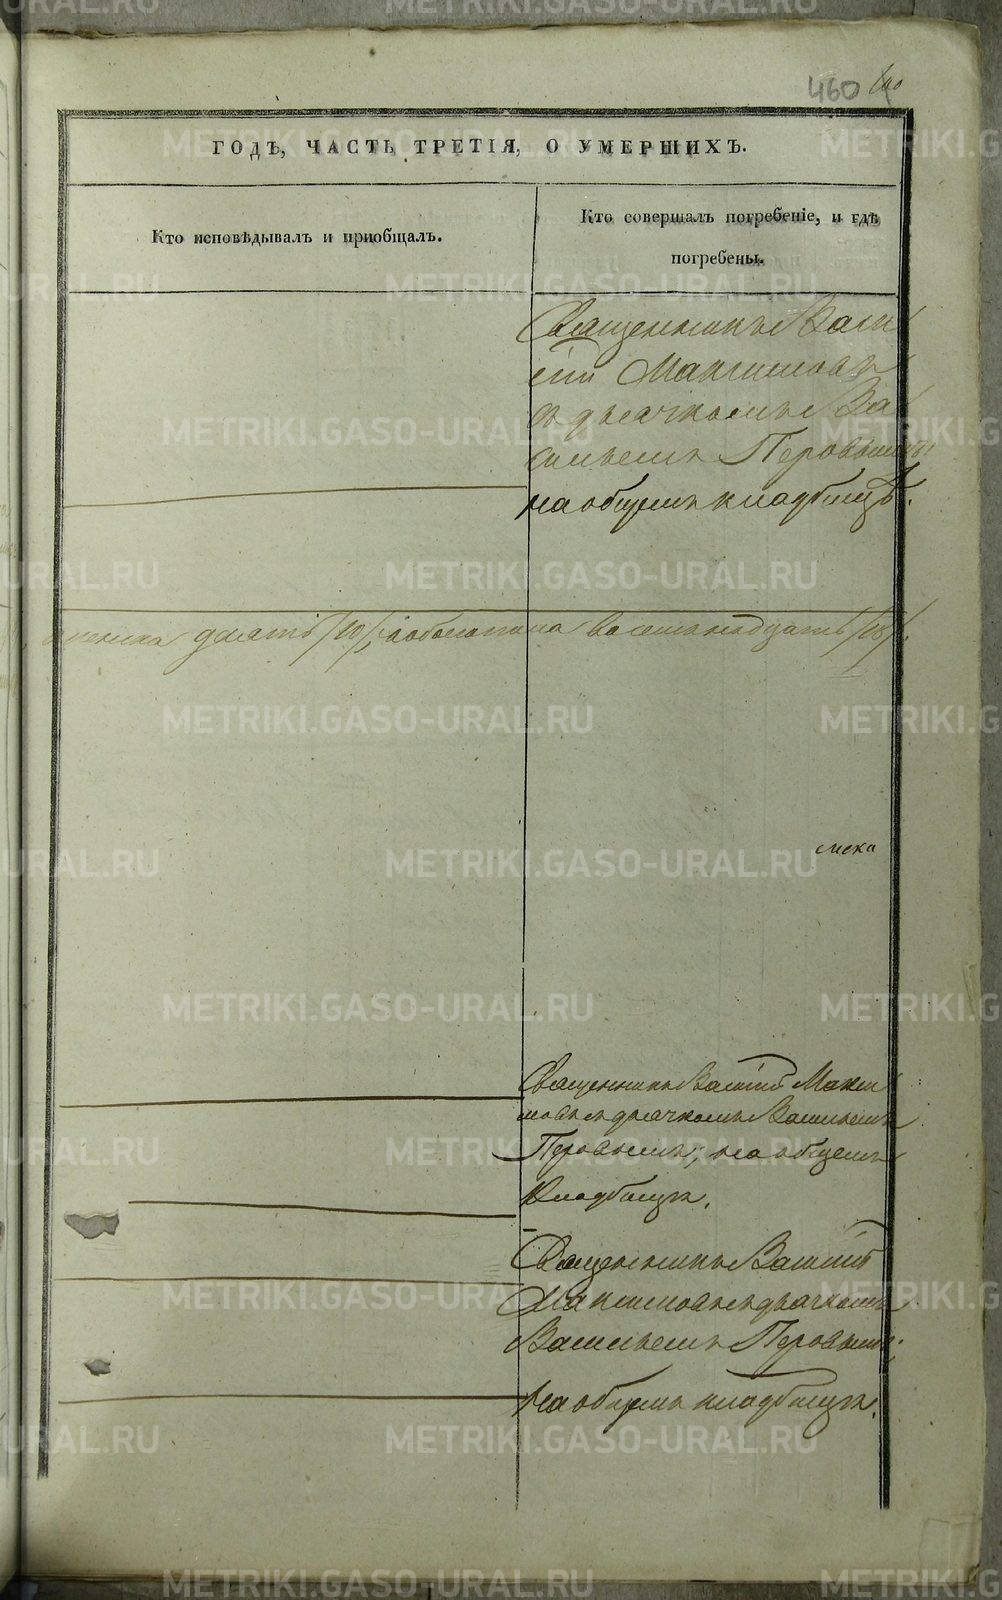 460
ГОДЪ, ЧАСТЬ ТРЕТІЯ, О УМЕРШИХЪ.
Кто исповѣдывалъ и пріобщалъ.
Кто совершалъ погребеніе, и гдѣ
погребены.
Священникъ Васи
лій Максимовъ
съ дьячкомъ Ва
сильемъ Перовымъ
на общемъ кладбищѣ.
девять соболѣзнова восемьнадцать /18/.
Священникъ Василій Макси
мовъ съ дьячкомъ Васильемъ
Перовымъ, на общемъ
кладбищѣ.
Священникъ Василій
Максимовъ съ дьячкомъ
Васильемъ Перовымъ;
на общемъ кладбищѣ.
METRIKI.GASO-URAL.RU